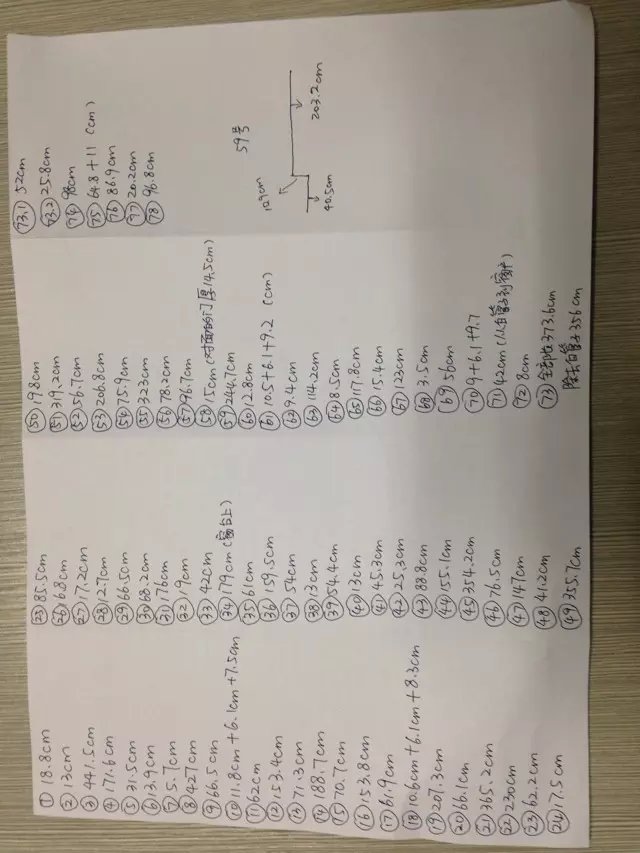 ① 18.8cm
② 13cm
③ 441.5cm
④ 171.6cm
⑤ 31.5cm
⑥ 13.9cm
⑦ 5.7cm
⑧ 427cm
⑨ 66.5cm
⑩ 11.8cm+6.1cm+7.5cm
⑪ 62cm
⑫ 153.4cm
⑬ 71.3cm
⑭ 188.7cm
⑮ 70.7cm
⑯ 153.8cm
⑰ 61.9cm
⑱ 10.6cm+6.1cm+8.3cm
⑲ 207.3cm
⑳ 66.1cm
㉑ 365.2cm
㉒ 230cm
㉓ 62.2cm
㉔ 17.5cm
㉕ 85.5cm
㉖ 6.8cm
㉗ 17.2cm
㉘ 12.7cm
㉙ 66.5cm
㉚ 68.2cm
㉛ 176cm
㉜ 19cm
㉝ 42cm
㉞ 179cm(窗台上)
㉟ 61cm
㊱ 159.5cm
㊲ 54cm
㊳ 13cm
㊴ 54.4cm
㊵ 13cm
㊶ 45.3cm
㊷ 25.3cm
㊸ 88.8cm
㊹ 155.1cm
㊺ 354.2cm
㊻ 76.5cm
㊼ 147cm
㊽ 41.2cm
㊾ 355.7cm
㊿ 198cm
(51) 319.2cm
(52) 56.7cm
(53) 206.8cm
(54) 75.9cm
(55) 323cm
(56) 78.2cm
(57) 96.7cm
(58) 15cm(对面的门厚14.5cm)
(59) 244.7cm
(60) 12.8cm
(61) 10.5+6.1+9.2 (cm)
(62) 9.4cm
(63) 114.2cm
(64) 8.5cm
(65) 117.8cm
(66) 15.4cm
(67) 123cm
(68) 3.5cm
(69) 56cm
(70) 9+6.1+9.7
(71) 42cm(从白管子到窗户)
(72) 8cm
(73) 全部长373.6cm
除去白管356cm
(73.1) 52cm
(73.2) 25.8cm
(74) 98cm
(75) 64.8+11 (cm)
(76) 86.9cm
(77) 20.2cm
(78) 96.8cm
59号
10.9cm
40.5cm
203.2cm